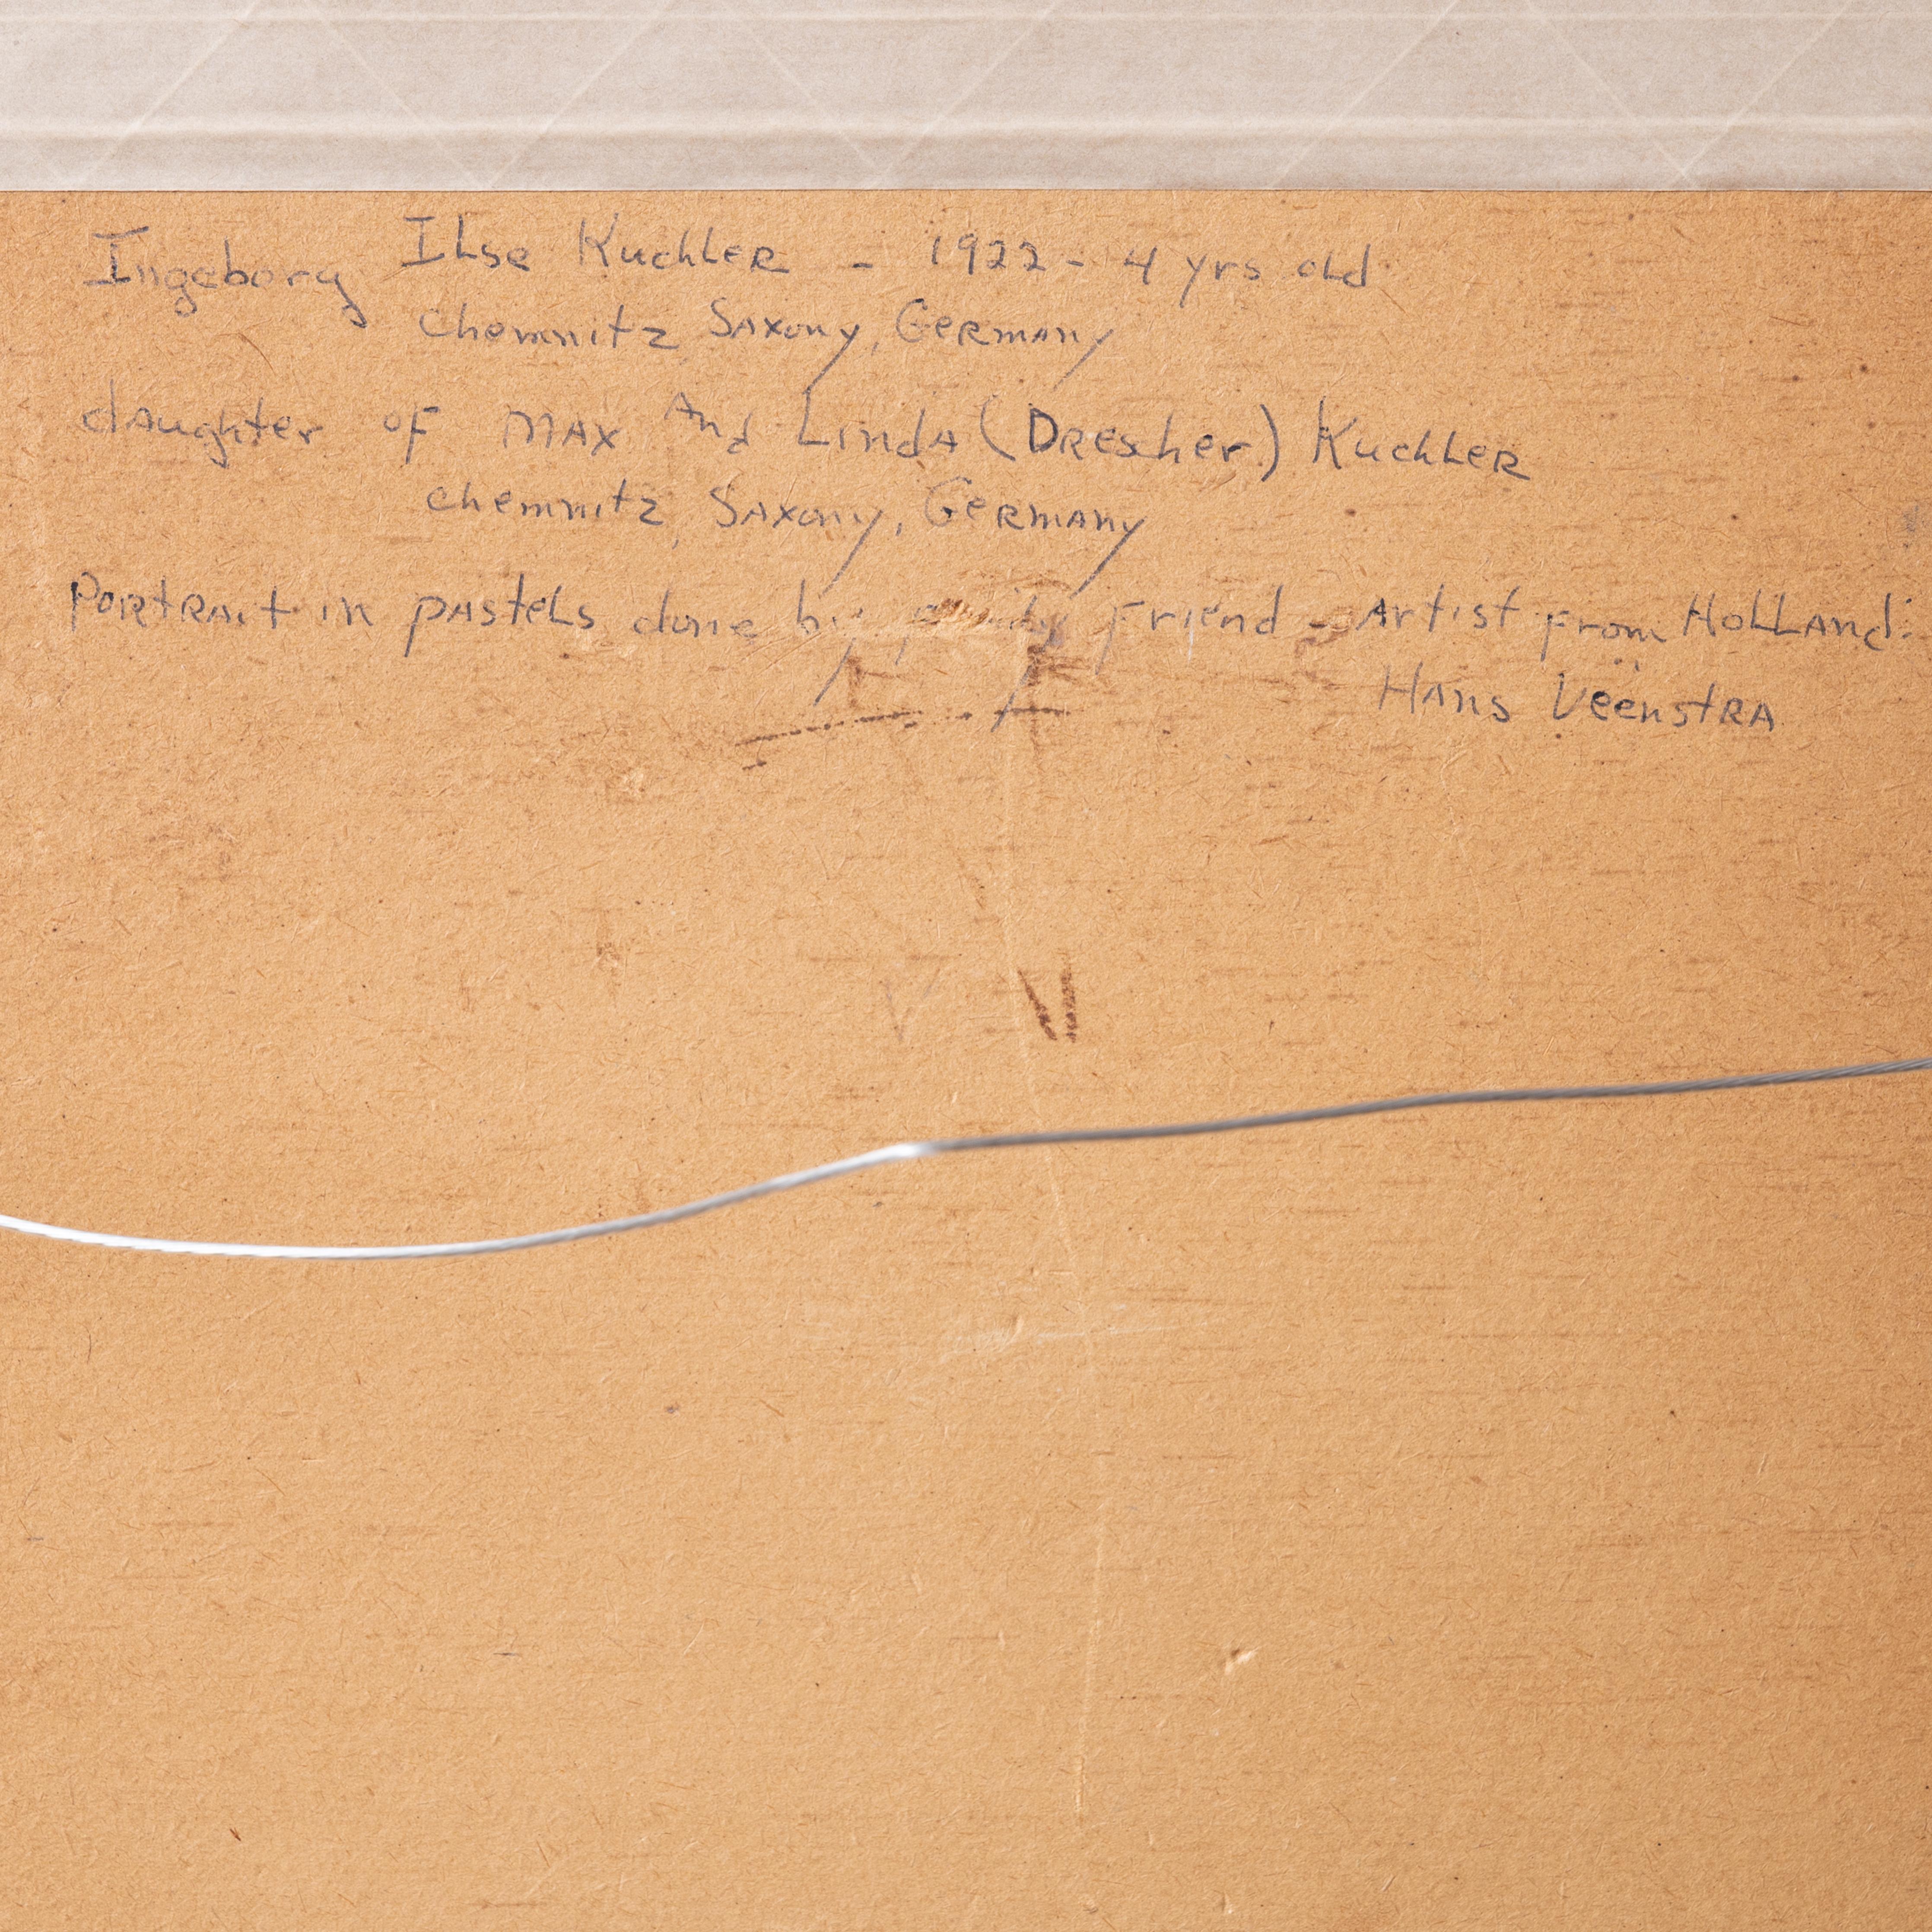 Ingeborg Ilse Kuchler - 1922 - 4 yrs old
Chemnitz, Saxony, Germany
daughter of Max And Linda (Drescher) Kuchler
Chemnitz, Saxony, Germany
Portrait in pastels done by Friend - Artist from Holland:
Hans Veenstra